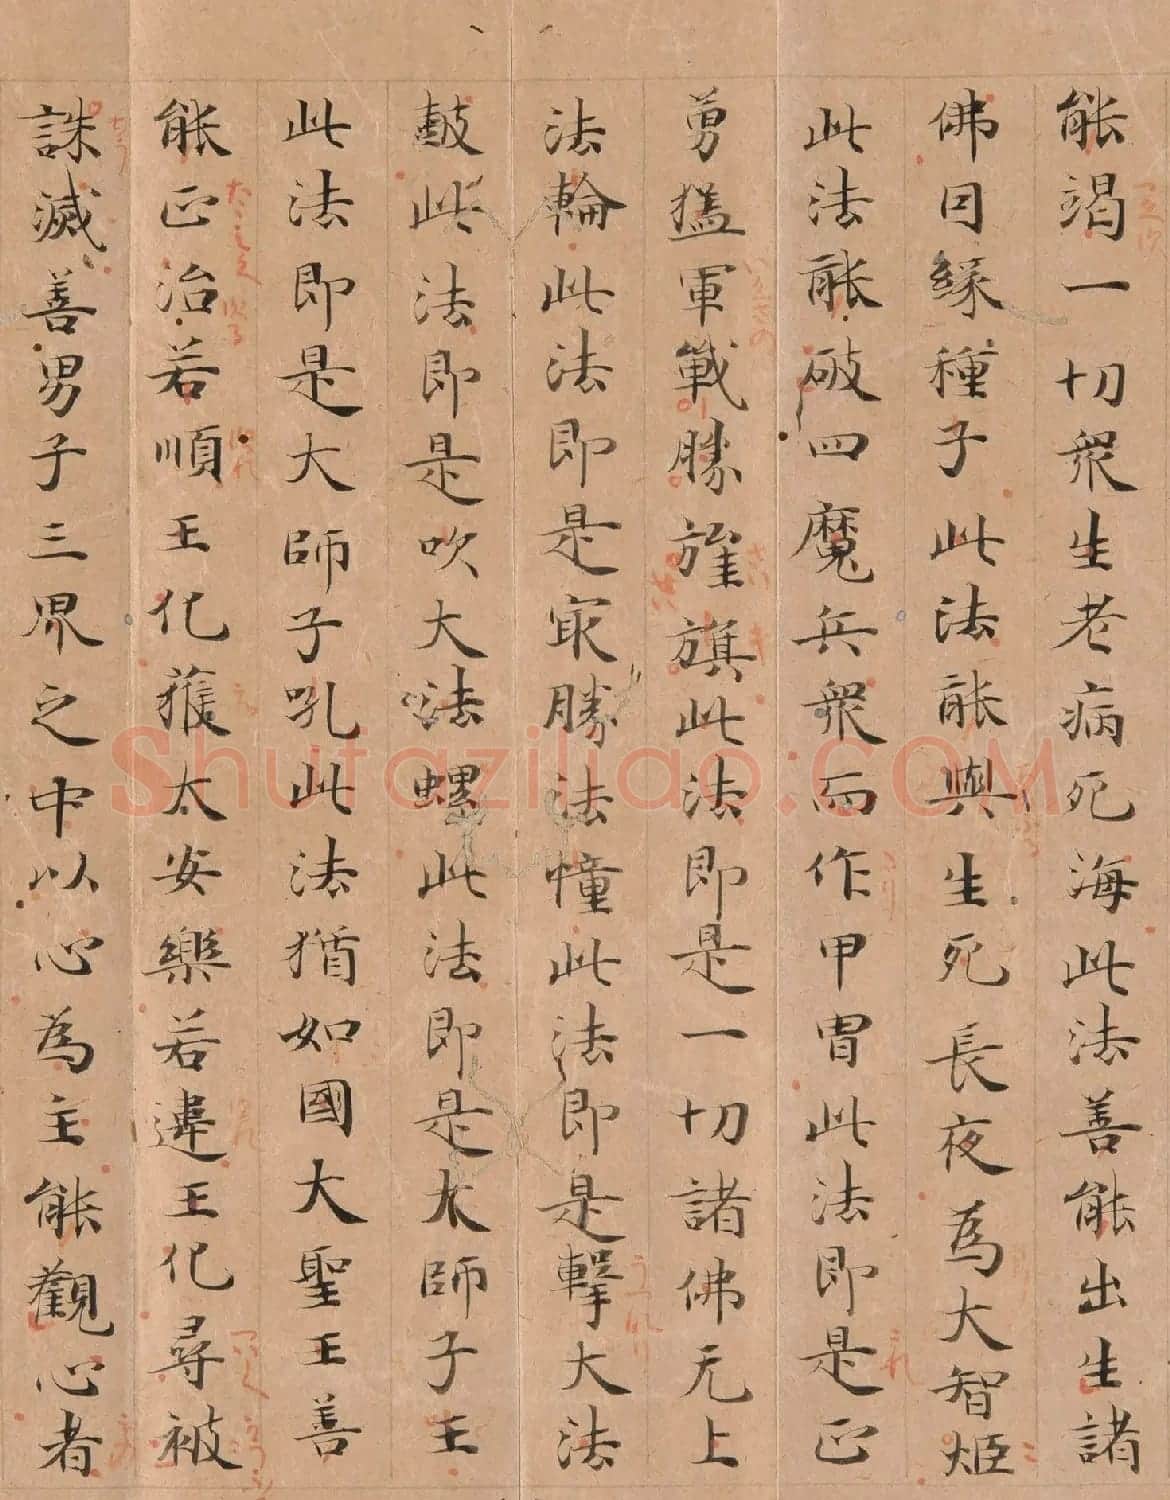 能竭一切衆生老病死海此法善能出生諸
佛因緣種子此法能與生死長夜為大智炬
此法能破四魔兵衆而作甲冑此法即是正
勇猛軍戰勝旌旗此法即是一切諸佛无上
法輪此法即是最勝法幢此法即是擊大法
鼓此法即是吹大法螺此法即是大師子王
此法即是大師子吼此法猶如國大聖王善
能正治若順王化獲大安樂若違王化尋被
誅滅善男子三界之中以心為主能觀心者
Shufaziliao.COM